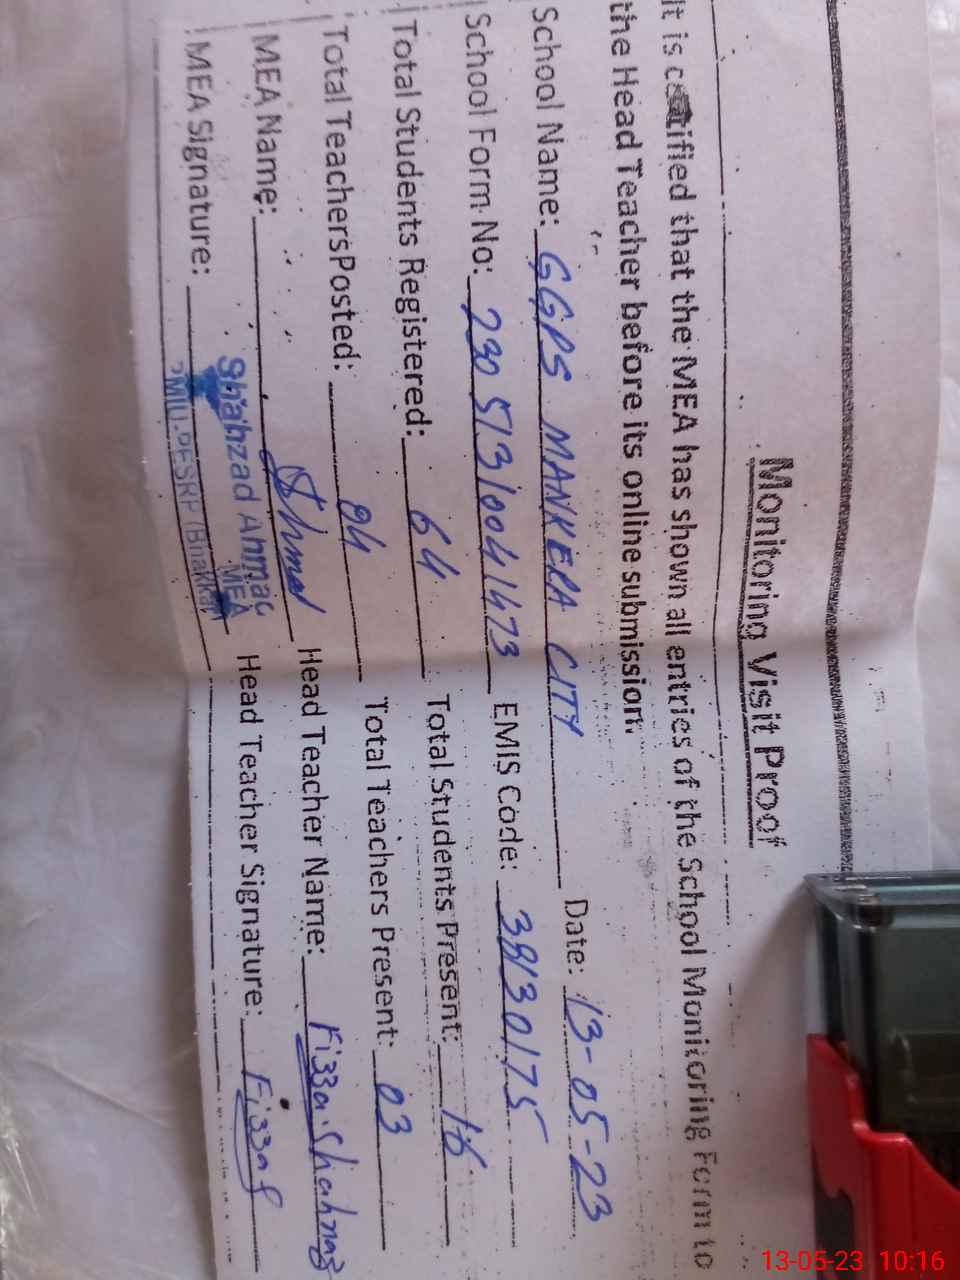 Monitoring Visit Proof
It is certified that the MEA has shown all entries of the School Monitoring Form to
the Head Teacher before its online submission.
School Name: GGPS MANKERA CITY Date: 13-05-23
School Form No: 230513/0041473 EMIS Code: 38130175
Total Students Registered: 64 Total Students Present: 16
Total TeachersPosted: 04 Total Teachers Present: 03
MEA Name: Head Teacher Name: Fizza Shahnaz
Shahzad Ahmad
MEA
MEA Signature: Head Teacher Signature: Fizza
PMIU-PESRP (Bhakkar
13-05-23 10:16